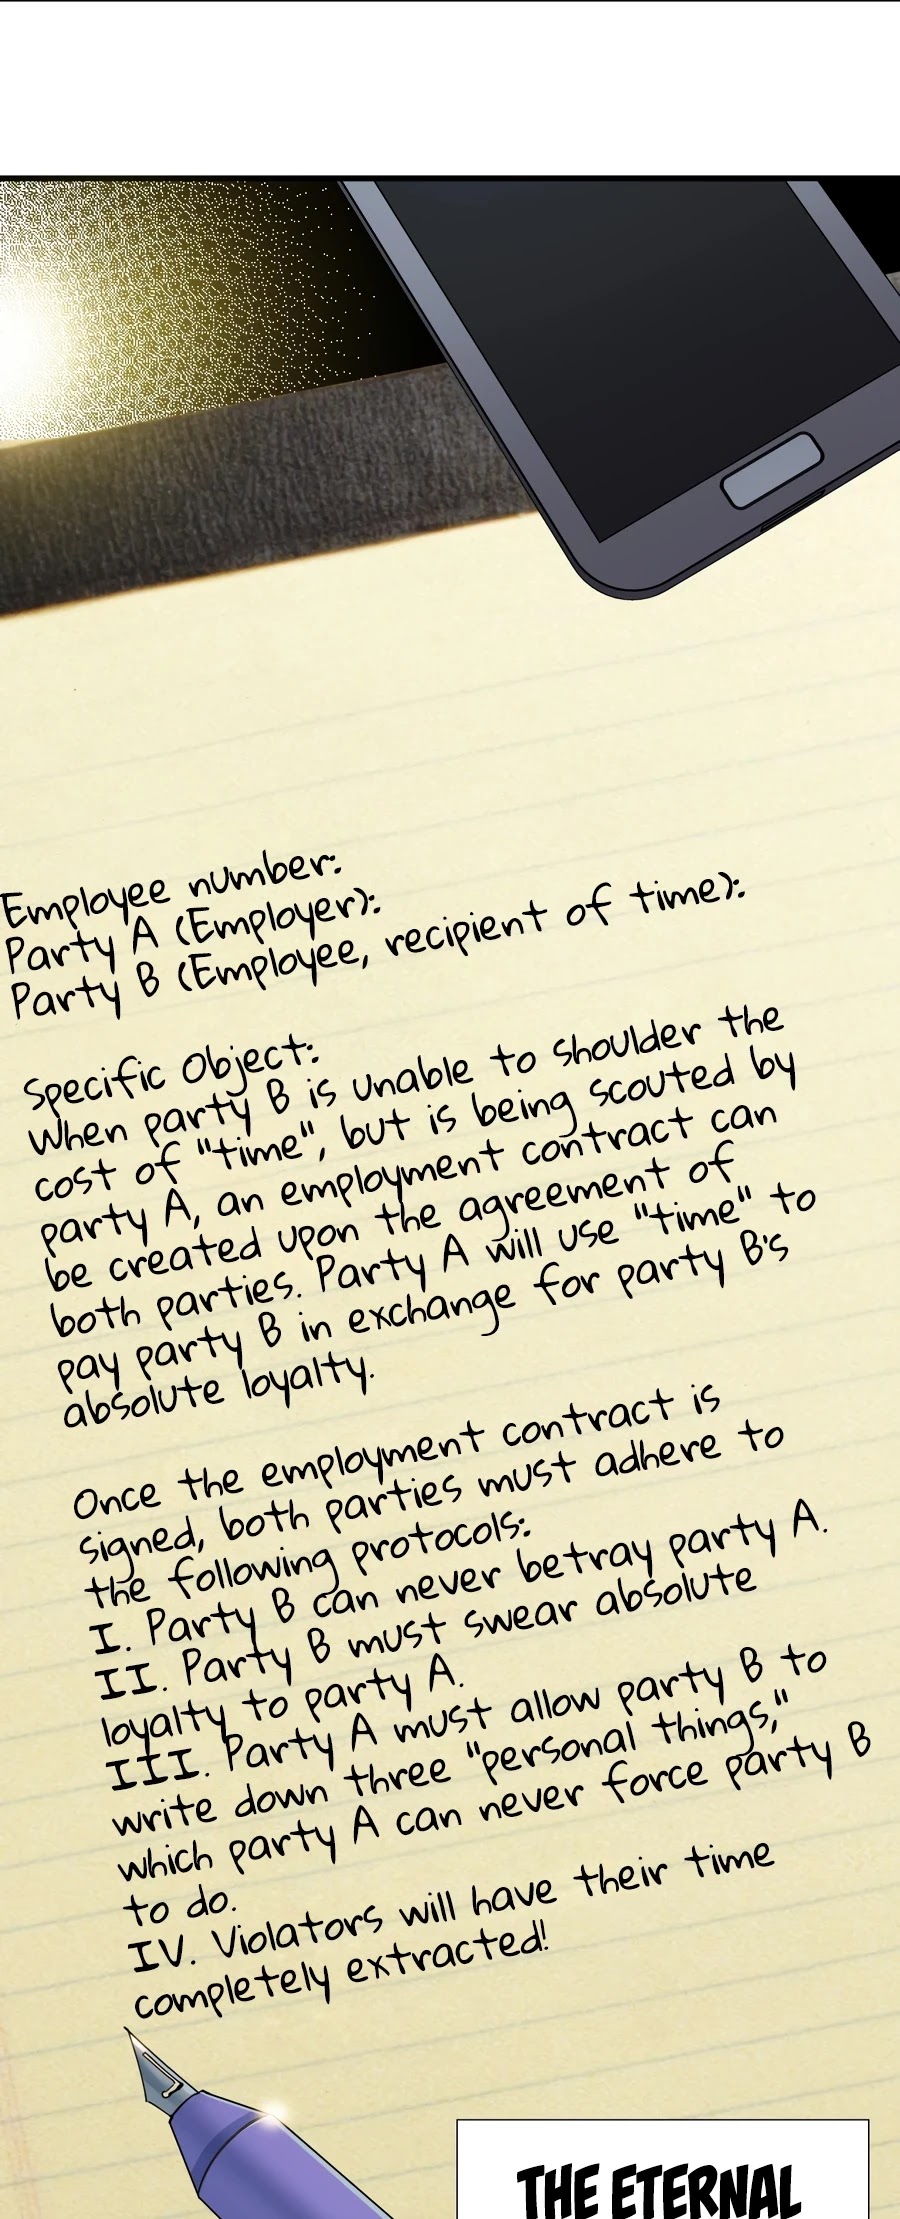 Employee number:
Party A (Employer):
Party B (Employee, recipient of time):
Specific Object:
When party B is unable to shoulder the
cost of "time", but is being scouted by
party A, an employment contract can
be created upon the agreement of
both parties. Party A will use "time" to
pay party B in exchange for party B's
absolute loyalty.
Once the employment contract is
signed, both parties must adhere to
the following protocols:
I. Party B can never betray party A.
II. Party B must swear absolute
loyalty to party A.
III. Party A must allow party B to
write down three "personal things,"
which party A can never force party B
to do.
IV. Violators will have their time
completely extracted!
THE ETERNAL